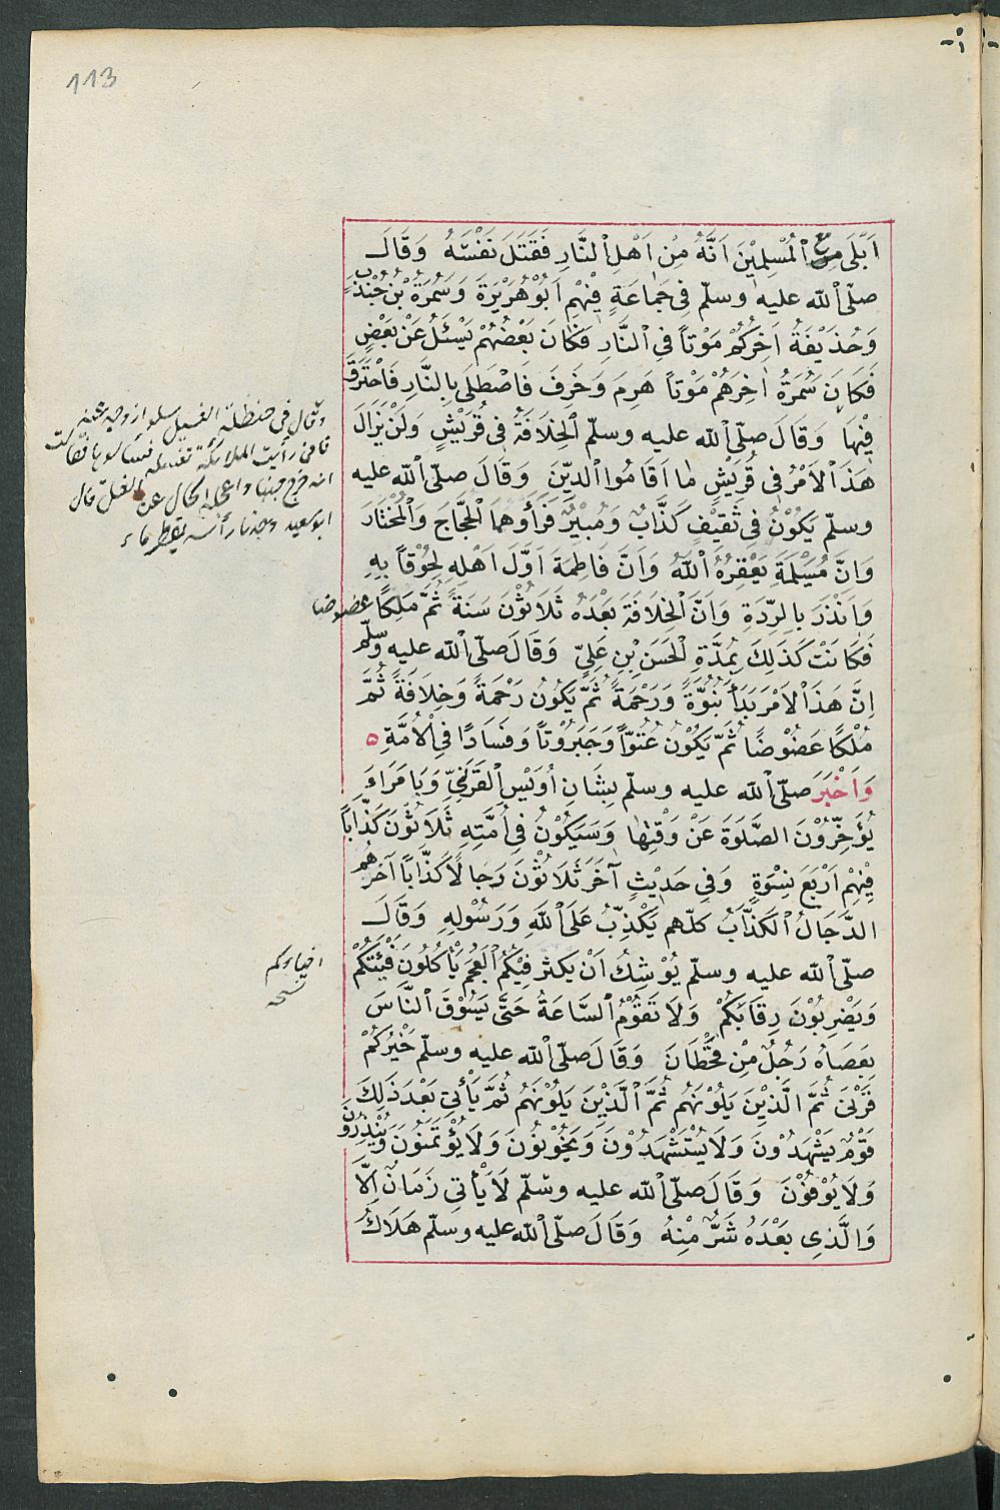 113
اَبْلَى مَعَ الْمُسْلِمِيْنَ اَنَّهُ مِنْ اَهْلِ النَّارِ فَقَتَلَ نَفْسَهُ وَقَالَ
صلّى الله عليه وسلّم فِى جَمَاعَةٍ فِيْهِمْ اَبُوْ هُرَيْرَةَ وَسَمُرَةُ بْنُ جُنْدَبٍ
وَحُذَيْفَةُ اٰخِرُكُمْ مَوْتاً فِى النَّارِ فَكَانَ بَعْضُهُمْ يَسْئَلُ عَنْ بَعْضٍ
فَكَانَ سَمُرَةُ اٰخِرَهُمْ مَوْتاً هَرِمَ وَخَرِفَ فَاصْطَلَى بِالنَّارِ فَاحْتَرَقَ
فِيْهَا وَقَالَ صلّى الله عليه وسلّم اَلْخِلَافَةُ فِى قُرَيْشٍ وَلَنْ يَزَالَ
هَذَا الْاَمْرُ فِى قُرَيْشٍ مَا اَقَامُوا الدِّيْنَ وَقَالَ صلّى الله عليه
وسلّم يَكُوْنُ فِى ثَقِيْفٍ كَذَّابٌ وَمُبِيْرٌ فَرَأَوْهُمَا الْحَجَّاجَ وَالْمُخْتَارَ
وَاَنَّ مُسَيْلَمَةَ يَعْقِرُهُ اللّٰهُ وَاَنَّ فَاطِمَةَ اَوَّلُ اَهْلِهِ لُحُوْقاً بِهِ
وَاَنْذَرَ بِالرِّدَّةِ وَاَنَّ الْخِلَافَةَ بَعْدَهُ ثَلَاثُوْنَ سَنَةً ثُمَّ مَلِكًا عضوضا
فَكَانَتْ كَذَلِكَ بِمُدَّةِ الْحَسَنِ بْنِ عَلِيٍّ وَقَالَ صلّى الله عليه وسلّم
اِنَّ هَذَا الْاَمْرَ بَدَأَ نُبُوَّةً وَرَحْمَةً ثُمَّ يَكُوْنُ رَحْمَةً وَخِلَافَةً ثُمَّ
مُلْكًا عَضُوْضًا ثُمَّ يَكُوْنُ عُتُوّاً وَجَبَرُوْتاً وَفَسَادًا فِى الْاُمَّةِ ه
وَاَخْبَرَ صلّى الله عليه وسلّم بِشَانِ اُوَيْسِ الْقَرَنِيِّ وَبِاُمَرَاءَ
يُؤَخِّرُوْنَ الصَّلَوٰةَ عَنْ وَقْتِهَا وَسَيَكُوْنُ فِى اُمَّتِهِ ثَلَاثُوْنَ كَذَّاباً
فِيْهِمْ اَرْبَعُ نِسْوَةٍ وَفِى حَدِيْثٍ آخَرَ ثَلَاثُوْنَ دَجَّالًا كَذَّاباً آخِرُهُم
الدَّجَّالُ الْكَذَّابُ كلّهم يَكْذِبُ عَلَى اللّٰهِ وَرَسُوْلِهِ وَقَالَ
صلّى الله عليه وسلّم يُوْشِكُ اَنْ يَكْثُرَ فِيْكُمُ الْعَجَمُ يَأْكُلُوْنَ فَيْئَكُمْ
وَيَضْرِبُوْنَ رِقَابَكُمْ وَلَا تَقُوْمُ السَّاعَةُ حَتَّى يَسُوْقَ النَّاسَ
بِعَصَاهُ رَجُلٌ مِنْ قَحْطَانَ وَقَالَ صلّى الله عليه وسلّم خَيْرُكُمْ
قَرْنِىْ ثُمَّ الَّذِيْنَ يَلُوْنَهُم ثُمَّ الَّذِيْنَ يَلُوْنَهُم ثُمَّ يَأْتِى بَعْدَ ذَلِكَ
قَوْمٌ يَشْهَدُوْنَ وَلَا يُسْتَشْهَدُوْنَ وَيَخُوْنُوْنَ وَلَا يُؤْتَمَنُوْنَ وَيَنْذِرُوْنَ
وَلَا يُوْفُوْنَ وَقَالَ صلّى الله عليه وسلّم لَا يَأْتِى زَمَانٌ اِلَّا
وَالَّذِى بَعْدَهُ شَرٌّ مِنْهُ وَقَالَ صلّى الله عليه وسلّم هَلَاكُ
وقال فى حنظلة الغسيل سلوا زوجه عنه
فانى رأيت الملائكة تغسله فسألوها فقالت
انه خرج جنبا واعجله الحال عن الغسل قال
ابو سعيد وجدنا رأسه يقطر ماء
افياءكم
نسخه